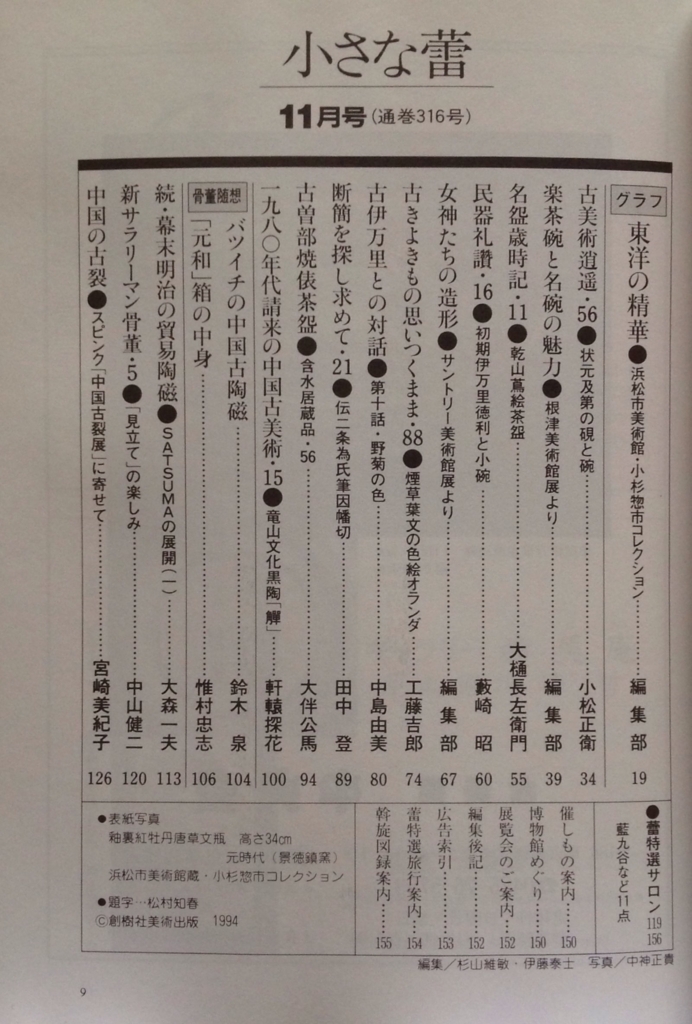 小さな蕾
11月号(通巻316号)
グラフ
東洋の精華●浜松市美術館・小杉惣市コレクション…………編集部 19
古美術逍遥・56●状元及第の硯と碗…………小松正衛 34
楽茶碗と名碗の魅力●根津美術館展より…………編集部 39
名盌歳時記・11●乾山蔦絵茶盌…………大樋長左衛門 55
民器礼讃・16●初期伊万里徳利と小碗…………藪崎 昭 60
女神たちの造形●サントリー美術館展より…………編集部 67
古きよきもの思いつくまま・88●煙草葉文の色絵オランダ……工藤吉郎 74
古伊万里との対話●第十話・野菊の色…………中島由美 80
断簡を探し求めて・21●伝二条為氏筆因幡切…………田中 登 89
古曽部焼俵茶盌●含水居蔵品・56…………大伴公馬 94
一九八〇年代請来の中国古美術・15●竜山文化黒陶「觶」……軒轅探花 100
骨董随想
バツイチの中国古陶磁…………鈴木 泉 104
「元和」箱の中身…………惟村忠志 106
続・幕末明治の貿易陶磁●SATSUMAの展開(一)…………大森一夫 113
新サラリーマン骨董・5●「見立て」の楽しみ…………中山健二 120
中国の古裂●スピンク「中国古裂展」に寄せて…………宮崎美紀子 126
●蕾特選サロン 119 156
藍九谷など11点
催しもの案内……150
博物館めぐり……150
展覧会のご案内……152
編集後記……152
広告索引……153
蕾特選旅行案内……154
斡旋図録案内……155
●表紙写真
釉裏紅牡丹唐草文瓶 高さ34cm
元時代(景徳鎮窯)
浜松市美術館蔵・小杉惣市コレクション
●題字…松村知春
©創樹社美術出版 1994
編集／杉山維敏・伊藤泰士 写真／中神正貴
9